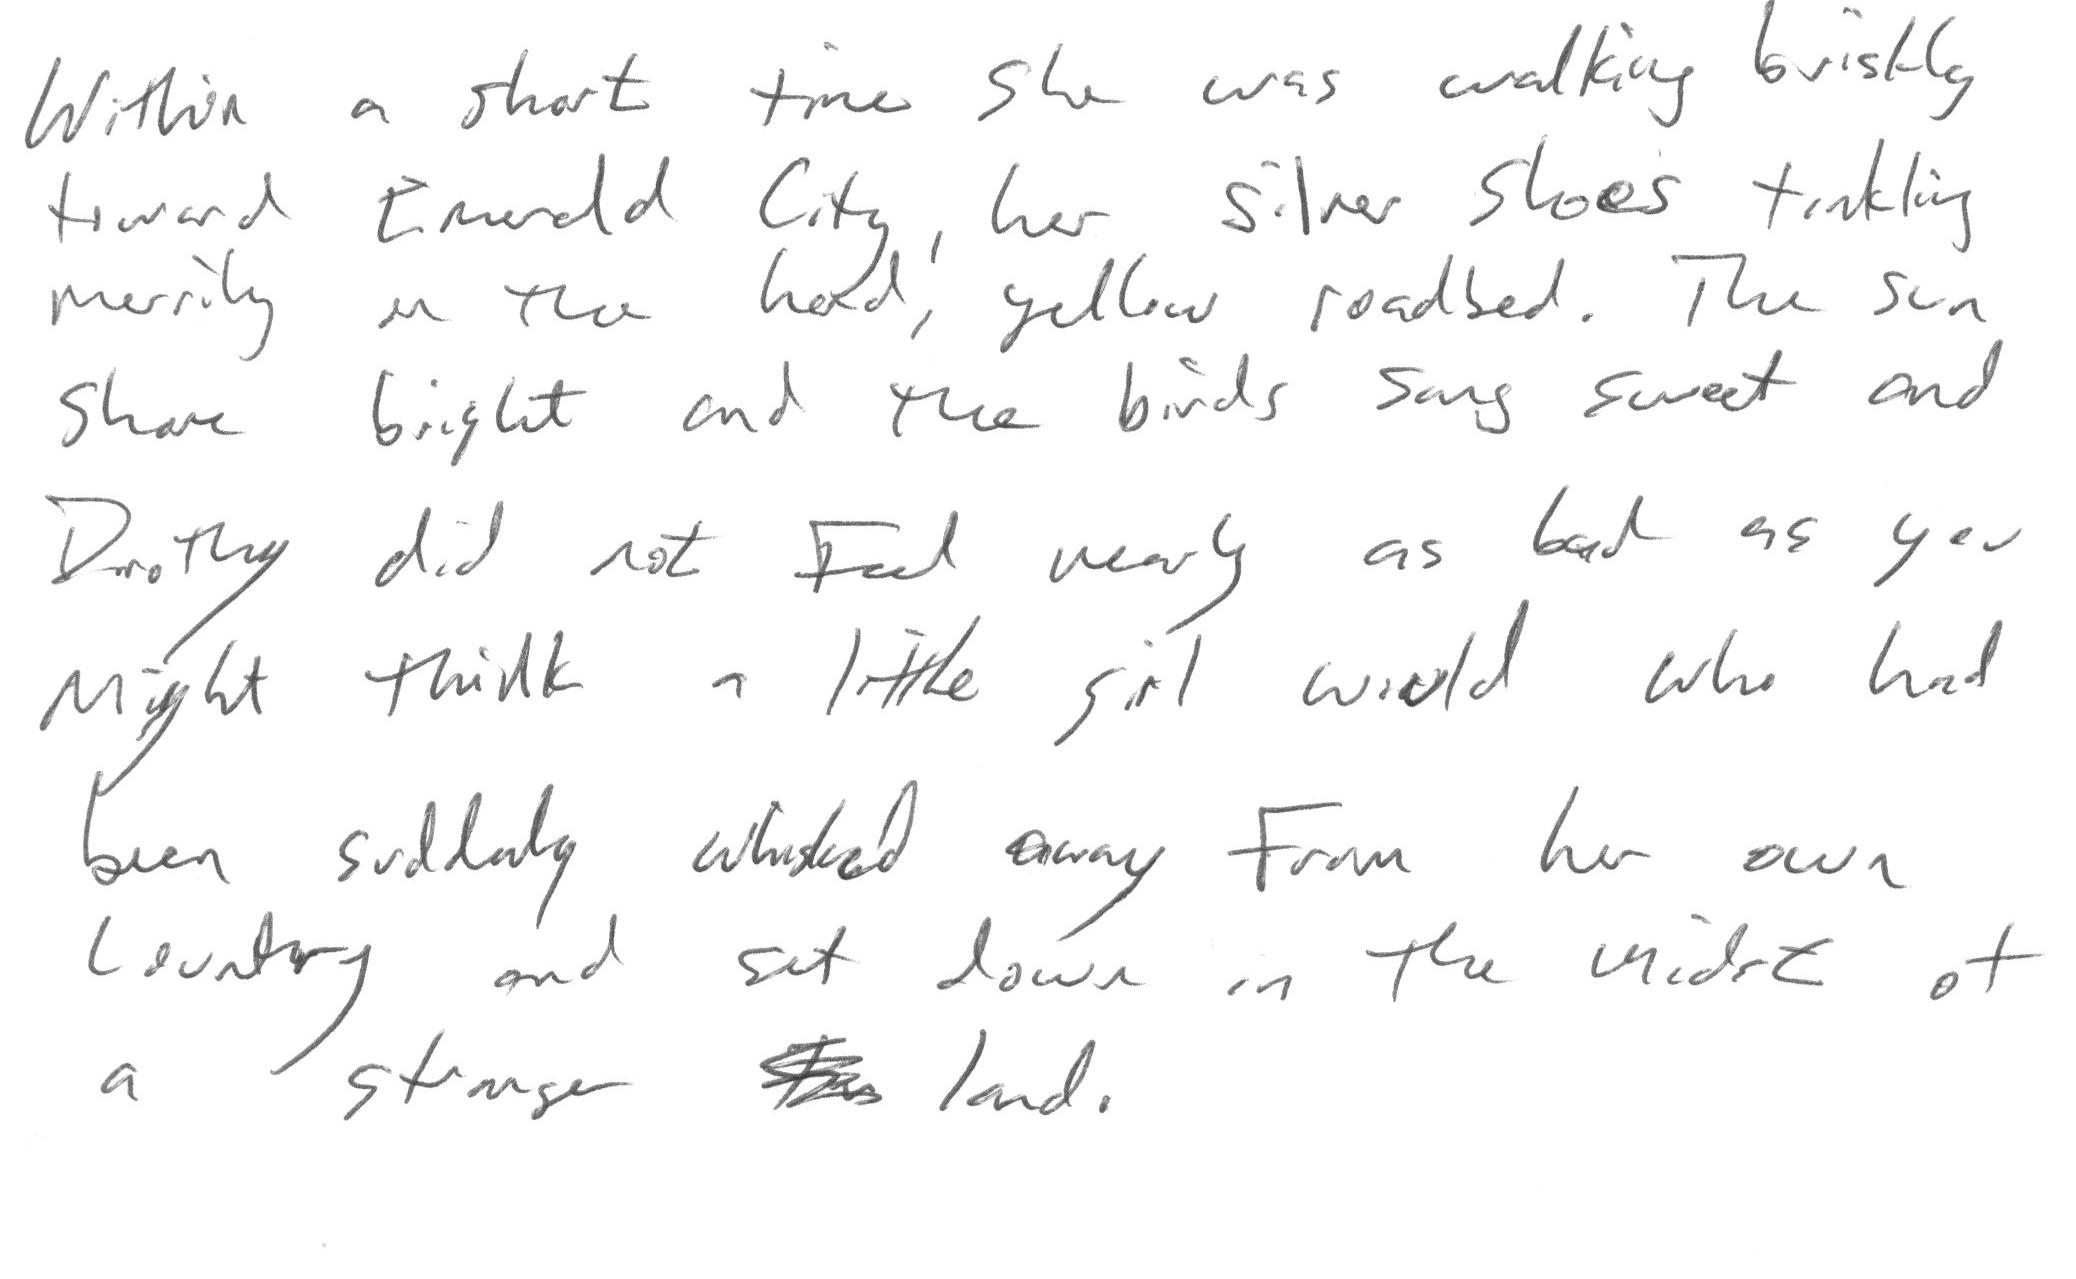 Within a short time she was walking briskly
toward Emerald City, her silver shoes tinkling
merrily on the hard, yellow roadbed. The sun
shone bright and the birds sang sweet and
Dorothy did not Feel nearly as bad as you
Might think a little girl would who had
been suddenly whisked away From her own
Country and set down in the midst of
a strange land.